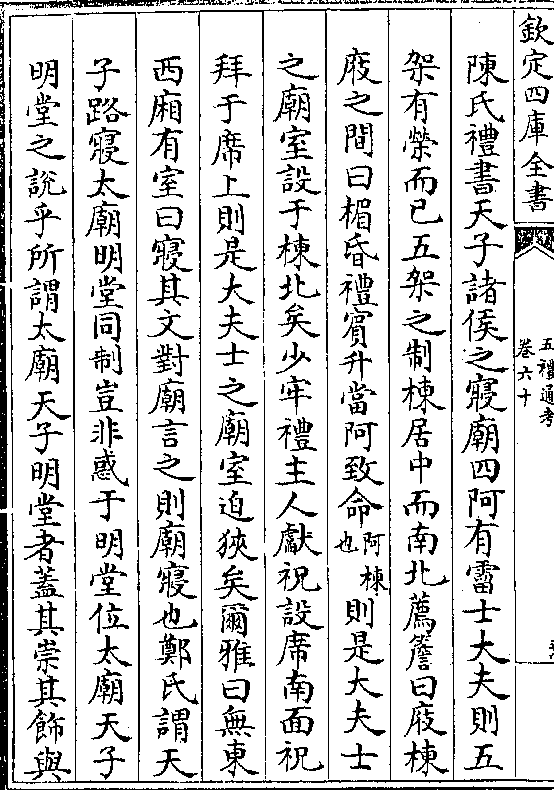 欽定四庫全書
五禮通考
卷六十
陳氏禮書天子諸侯之寢廟四阿有霤士大夫則五
架有榮而已五架之制棟居中而南北薦簷曰庪棟
庪之間曰楣昏禮賓升當阿致命阿棟也則是大夫士
之廟室設于棟北矣少牢禮主人獻祝設席南面祝
拜于席上則是大夫士之廟室迫狹矣爾雅曰無東
西廂有室曰寢其文對廟言之則廟寢也鄭氏謂天
子路寢太廟明堂同制豈非惑于明堂位太廟天子
明堂之說乎所謂太廟天子明堂者葢其崇其飾與